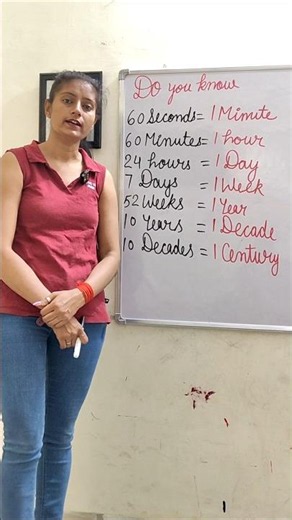 Do you know
60 Seconds = 1 Minute
60 Minutes = 1 hour
24 hours = 1 Day
7 Days = 1 Week
52 Weeks = 1 Year
10 Years = 1 Decade
10 Decades = 1 Century